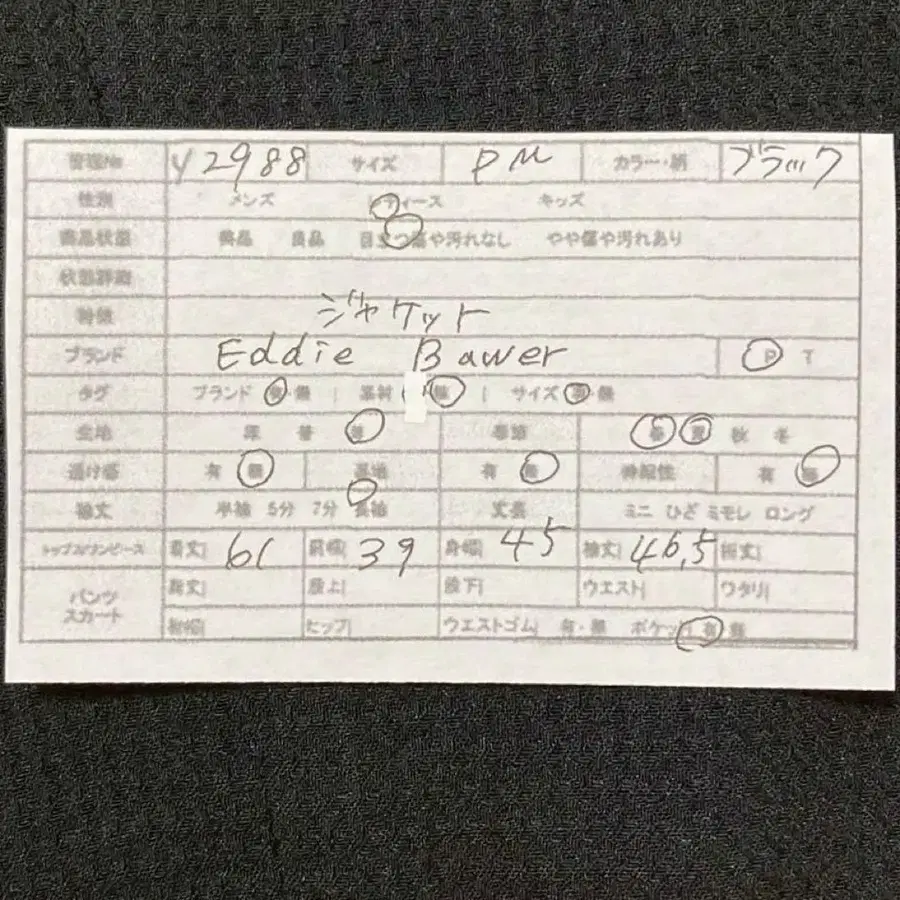 管理No Y2988 サイズ PM カラー・柄 ブラック
性別 メンズ レディース キッズ
商品状態 美品 良品 目立つ傷や汚れなし やや傷や汚れあり
状態詳細
特徴 ジャケット
ブランド Eddie Bawer P T
タグ ブランド 有・無 | 素材 無 | サイズ 有・無
生地 厚 普 薄 季節 春 夏 秋 冬
透け感 有 無 裏地 有 無 伸縮性 有 無
袖丈 半袖 5分 7分 長袖 丈長 ミニ ひざ ミモレ ロング
トップス/ワンピース 着丈| 61 肩幅| 39 身幅| 45 袖丈| 46,5 裄丈|
パンツ スカート 総丈| 股上| 股下| ウエスト| ワタリ|
裾幅| ヒップ| ウエストゴム| 有・無 ポケット| 有 無